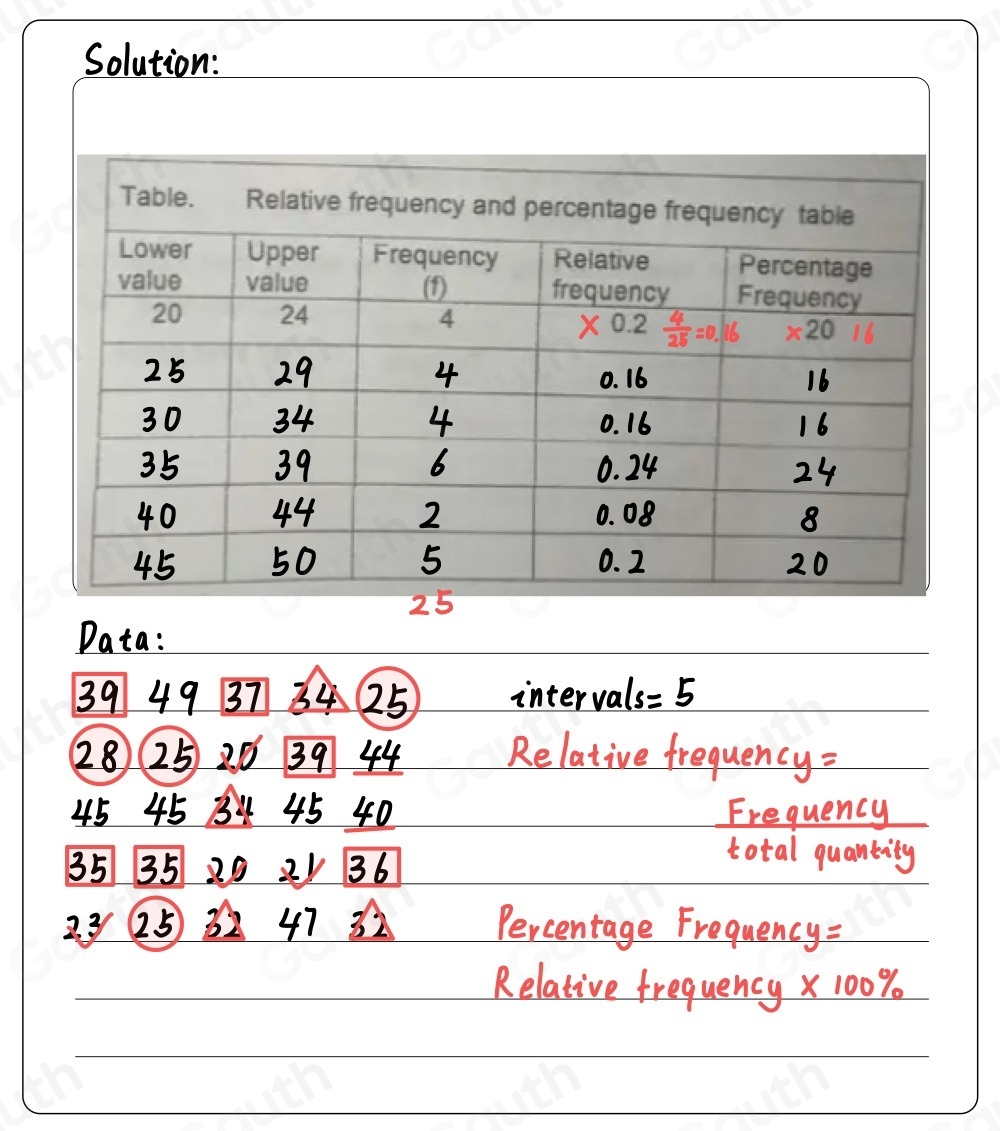 Solution:
Table. Relative frequency and percentage frequency table
Lower value Upper value Frequency (f) Relative frequency Percentage Frequency
20 24 4 × 0.2 4/25=0.16 ×20 16
25 29 4 0.16 16
30 34 4 0.16 16
35 39 6 0.24 24
40 44 2 0.08 8
45 50 5 0.2 20
25
Data:
39 49 37 34 25
28 25 20 39 44
45 45 34 45 40
35 35 20 21 36
23 25 32 47 32
intervals= 5
Relative frequency=
Frequency
total quantity
Percentage Frequency=
Relative frequency × 100%
Gauth